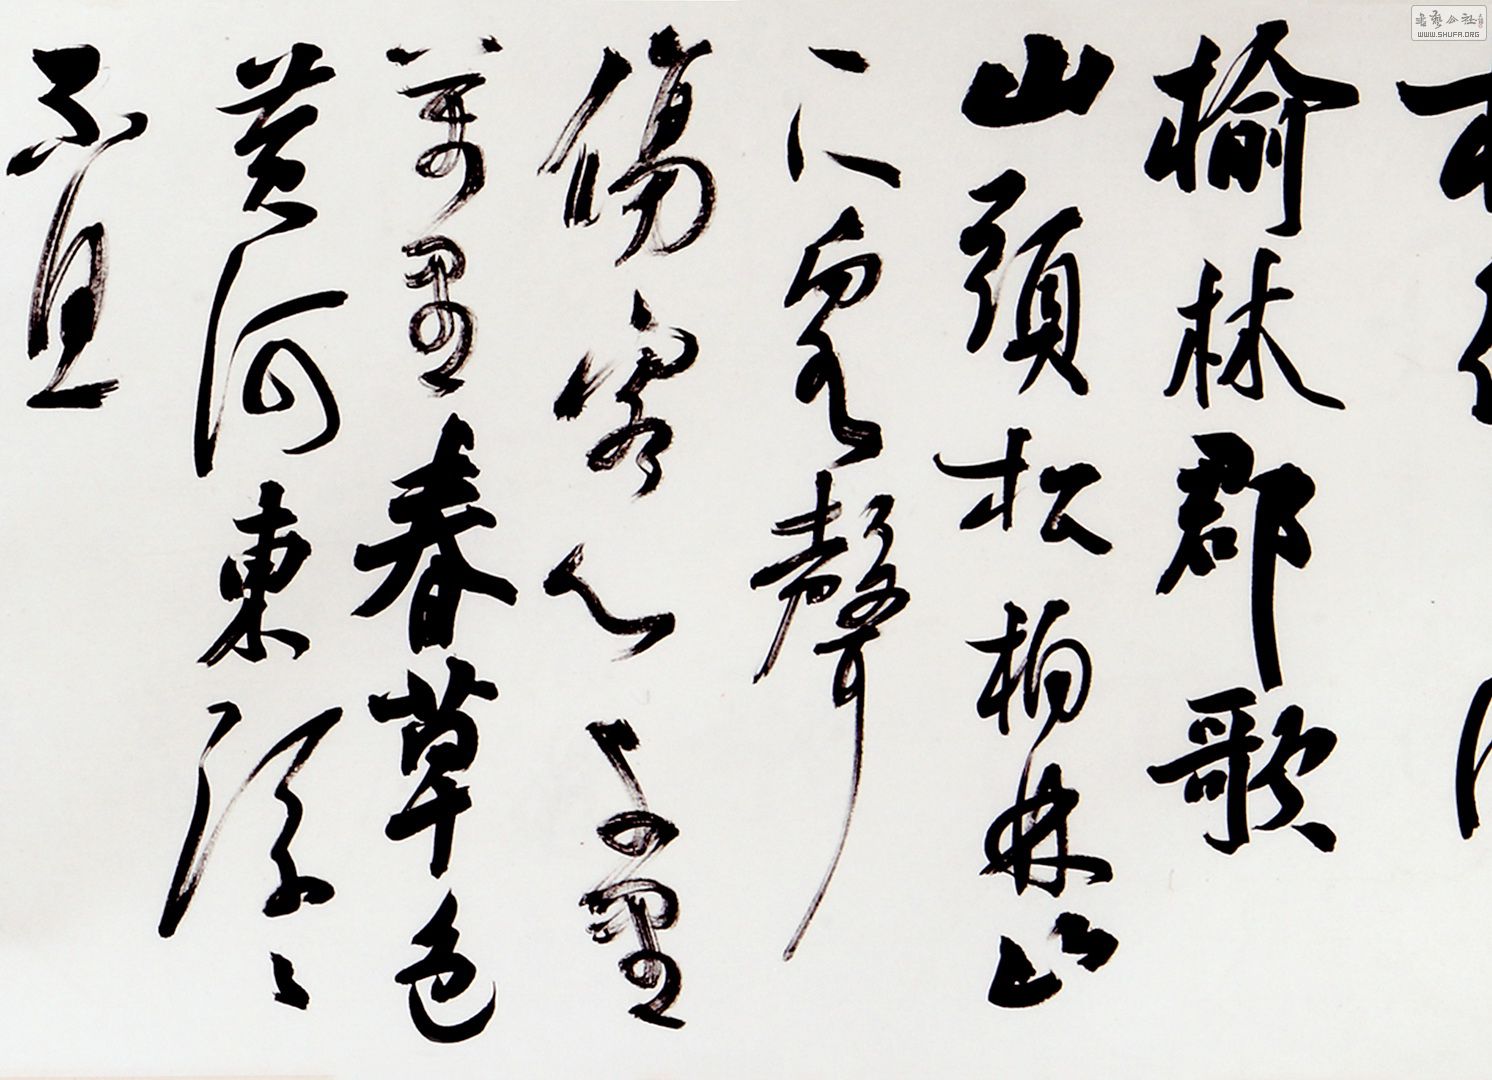 榆林郡歌
山頭松柏林山
下泉聲
傷客心千里
萬里春草色
黃河東流々
不息
書藝公社
WWW.SHUFA.ORG